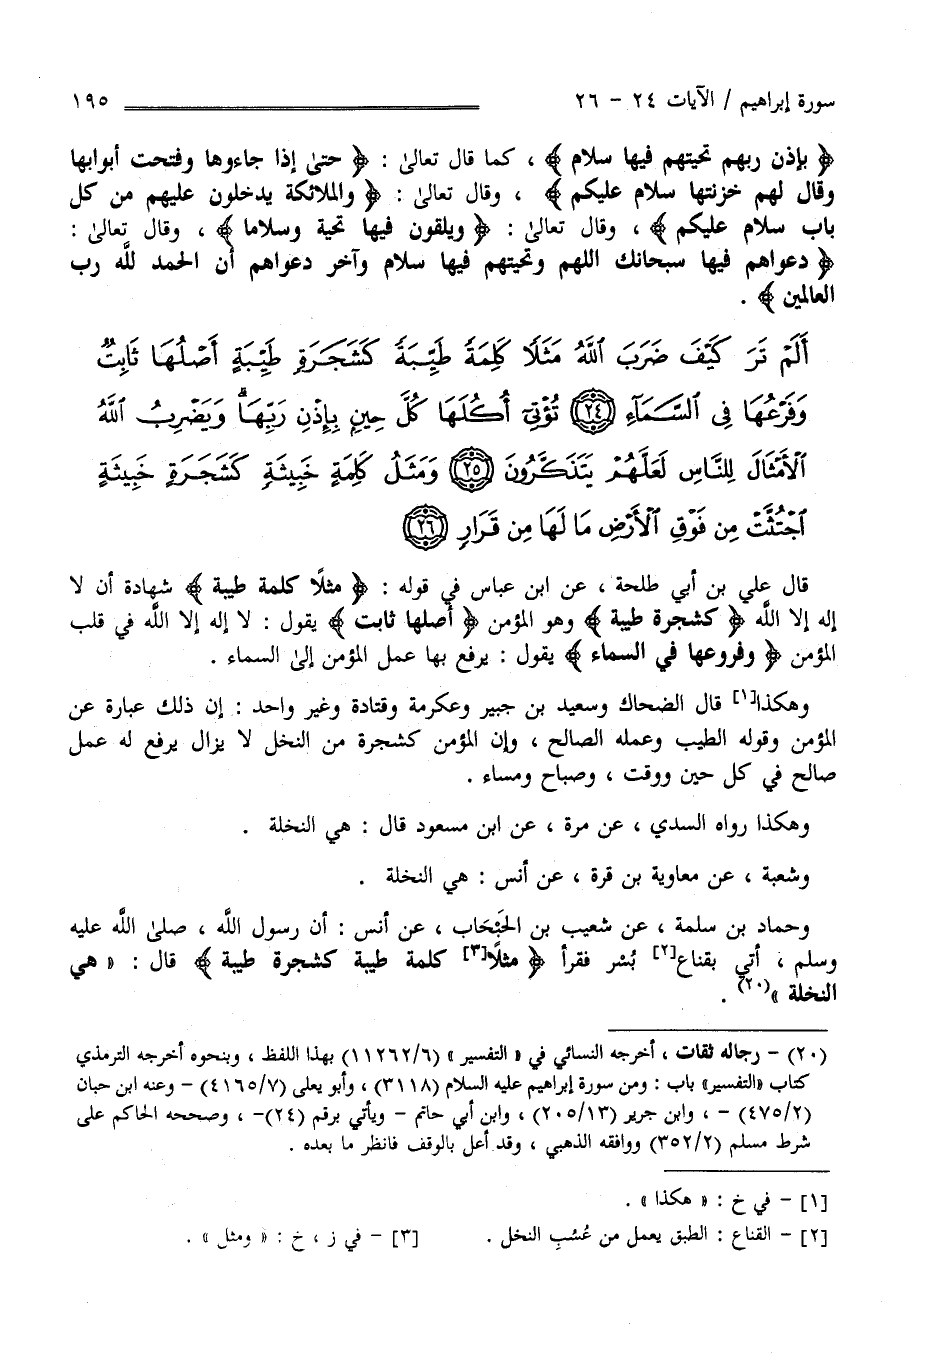 سورة إبراهيم / الآيات ٢٤ - ٢٦ ١٩٥
﴿ بإذن ربهم تحيتهم فيها سلام ﴾ ، كما قال تعالىٰ : ﴿ حتىٰ إذا جاءوها وفتحت أبوابها
وقال لهم خزنتها سلام عليكم ﴾ ، وقال تعالىٰ : ﴿ والملائكة يدخلون عليهم من كل
باب سلام عليكم ﴾ ، وقال تعالىٰ : ﴿ ويلقون فيها تحية وسلاما ﴾ ، وقال تعالىٰ :
﴿ دعواهم فيها سبحانك اللهم وتحيتهم فيها سلام وآخر دعواهم أن الحمد للَّه رب
العالمين ﴾ .
أَلَمْ تَرَ كَيْفَ ضَرَبَ ٱللَّهُ مَثَلًا كَلِمَةً طَيِّبَةً كَشَجَرَةٍ طَيِّبَةٍ أَصْلُهَا ثَابِتٌ
وَفَرْعُهَا فِى ٱلسَّمَآءِ ٢٤ تُؤْتِىٓ أُكُلَهَا كُلَّ حِينٍ بِإِذْنِ رَبِّهَاۗ وَيَضْرِبُ ٱللَّهُ
ٱلْأَمْثَالَ لِلنَّاسِ لَعَلَّهُمْ يَتَذَكَّرُونَ ٢٥ وَمَثَلُ كَلِمَةٍ خَبِيثَةٍ كَشَجَرَةٍ خَبِيثَةٍ
ٱجْتُثَّتْ مِن فَوْقِ ٱلْأَرْضِ مَا لَهَا مِن قَرَارٍ ٢٦
قال علي بن أبي طلحة ، عن ابن عباس في قوله : ﴿ مثلًا كلمة طيبة ﴾ شهادة أن لا
إله إلا اللَّه ﴿ كشجرة طيبة ﴾ وهو المؤمن ﴿ أصلها ثابت ﴾ يقول : لا إله إلا اللَّه في قلب
المؤمن ﴿ وفروعها في السماء ﴾ يقول : يرفع بها عمل المؤمن إلىٰ السماء .
وهكذا[١] قال الضحاك وسعيد بن جبير وعكرمة وقتادة وغير واحد : إن ذلك عبارة عن
المؤمن وقوله الطيب وعمله الصالح ، وإن المؤمن كشجرة من النخل لا يزال يرفع له عمل
صالح في كل حين ووقت ، وصباح ومساء .
وهكذا رواه السدي ، عن مرة ، عن ابن مسعود قال : هي النخلة .
وشعبة ، عن معاوية بن قرة ، عن أنس : هي النخلة .
وحماد بن سلمة ، عن شعيب بن الحَبْحَاب ، عن أنس : أن رسول اللَّه ، صلىٰ اللَّه عليه
وسلم ، أتي بقناع[٢] بُسْر فقرأ ﴿ مثلًا[٣] كلمة طيبة كشجرة طيبة ﴾ قال : « هي
النخلة »(٢٠) .
(٢٠) - رجاله ثقات ، أخرجه النسائي في « التفسير » (١١٢٦٢/٦) بهذا اللفظ ، وبنحوه أخرجه الترمذي
كتاب «التفسير» باب : ومن سورة إبراهيم عليه السلام (٣١١٨) ، وأبو يعلى (٤١٦٥/٧) - وعنه ابن حبان
(٤٧٥/٢) - ، وابن جرير (٢٠٥/١٣) ، وابن أبي حاتم - ويأتي برقم (٢٤)- ، وصححه الحاكم على
شرط مسلم (٣٥٢/٢) ووافقه الذهبي ، وقد أعل بالوقف فانظر ما بعده .
[١] - في خ : « هكذا » .
[٢] - القناع : الطبق يعمل من عُسُبِ النخل . [٣] - في ز ، خ : « ومثل » .